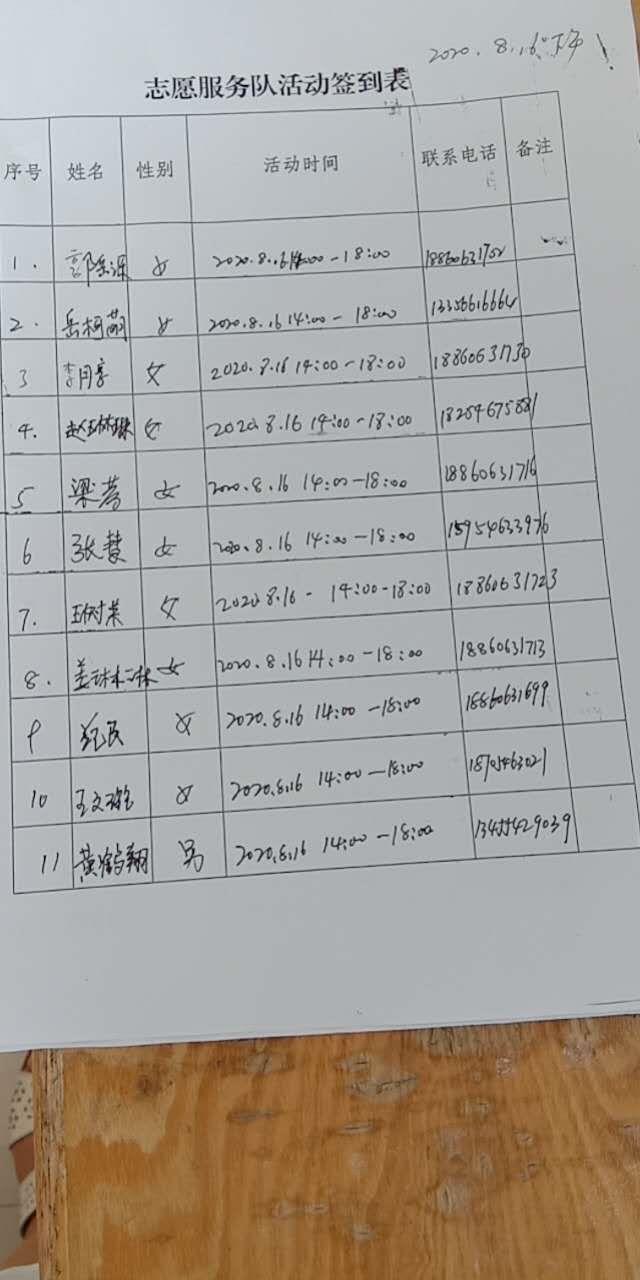 2020.8.16 下午!
志愿服务队活动签到表
序号 姓名 性别 活动时间 联系电话 备注
1. 女 2020.8.16 14:00-18:00 18860631702
2. 岳柯萌 女 2020.8.16 14:00- 18:00 13356616664
3 李月亭 女 2020.8.16 14:00-18:00 18860631730
4. 赵琳琳 女 2020.8.16 14:00-18:00 18254675881
5 梁蒿 女 2020.8.16 14:00-18:00 18860631716
6 张慧 女 2020.8.16 14:00-18:00 15954633976
7. 王树荣 女 2020.8.16- 14:00-18:00 18860631723
8. 女 2020.8.16 14:00-18:00 18860631713
9 纪民 女 2020.8.16 14:00-18:00 18860631699
10 女 2020.8.16 14:00-18:00
11 黄鹤翔 男 2020.8.16 14:00-18:00 13455429039